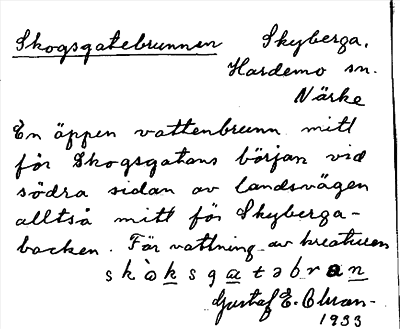 Skogsgatebrunnen Skyberga,
Hardemo sn.
Närke
En öppen vattenbrunn mitt
för Skogsgatans början vid
södra sidan av landsvägen
alltså mitt för Skyberga-
backen. För vattning av kreaturen
skòksgatəbran
Gustaf E.
1933